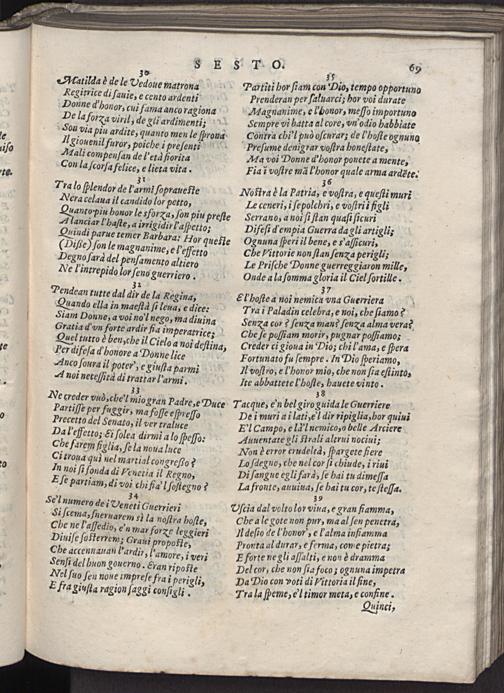 SESTO. 69
30
Matilda è de le Vedoue matrona
Regiſtrice di ſauie, e cento ardenti
Donne d'honor, cui fama ancoragiona
De la forza viril, de gli ardimenti;
Son via piu ardite, quanto men le ſprona
Il giouenil furor, poiche i preſenti
Mali compenſan de l'età fiorita
Con la ſcorſa felice, e lieta vita.
31
Tra lo ſplendor de l'armi ſoprauеſte
Nera celaua il candido lor petto,
Quanto piu honor le sforza, ſon piu preſte
A lanciar l'haſte, a irrigidir l'aſpetto;
Quindi parue temer Barbara: Hor queſte
(Diſſe) ſon le magnanime, e l'effetto
Degno ſarà del penſamento altiero
Ne l'intrepido lor ſeno guerriero.
32
Pendean tutte dal dir de la Regina,
Quando ella in maeſtà ſi leua, e dice:
Siam Donne, a voi no'l nego, ma diuina
Gratia d'vn forte ardir fia imperatrice;
Quel tutto è ben, che il Cielo a noi deſtina,
Per difeſa d'honore a Donne lice
Anco ſoura il poter', e giuſta parmi
A noi neceſſità di trattar l'armi.
33
Ne creder vuò, che'l mio gran Padre, e Duce
Partiſſe per fuggir, ma foſſe eſpreſſo
Precetto del Senato, il ver traluce
Da l'effetto; Ei ſolea dirmi a lo ſpeſſo:
Che farem figlia, ſe la noua luce
Ci troua quì nel martial congreſſo?
In noi ſi fonda di Venetia il Regno,
E ſe partiam, di voi chi fia'l ſoſtegno?
34
Se'l numero de i Veneti Guerrieri
Si ſcema, ſneruarem sì la noſtra hoſte,
Che ne l'aſſedio, e'n mar forze leggieri
Diuiſe ſoſterrem; Graui propoſte,
Che accennauan l'ardir, l'amore, i veri
Senſi del buon gouerno. Eran ripoſte
Nel ſuo ſen noue impreſe fra i perigli,
E fra giuſta ragion ſaggi conſigli.
35
Partiti hor ſiam con Dio, tempo opportuno
Prenderan per ſaluarci; hor voi durate
Magnanime, e l'honor, meſſo importuno
Sempre vi batta al core, vn'odio habbiate
Contra chi'l può oſcurar; de l'hoſte ognuno
Preſume denigrar voſtra honeſtate,
Ma voi Donne d'honor ponete a mente,
Fia i voſtre mà l'honor quale arma ardēte.
36
Noſtra è la Patria, e voſtra, e queſti muri
Le ceneri, i ſepolchri, e voſtri figli
Serrano, a noi ſi ſtan quaſi ſicuri
Difeſi d'empia Guerra da gli artigli;
Ognuna ſperi il bene, e s'aſſicuri,
Che Vittorie non ſtan ſenza perigli;
Le Priſche Donne guerreggiaron mille,
Onde a la ſomma gloria il Ciel ſortille.
37
E l'hoſte a noi nemica vna Guerriera
Tra i Paladin celebra, e noi, che ſiamo?
Senza cor? ſenza man? ſenza alma vera?
Che ſe poſſiam morir, pugnar poſſiamo;
Creder ci gioua in Dio; chi l'ama, e ſpera
Fortunato fu ſempre. In Dio ſperiamo,
Il voſtro, e l'honor mio, che non ſia eſtinto,
Ite abbattete l'hoſte, hauete vinto.
38
Tacque, e'n bel giro guida le Guerriere
De i muri a i lati, e'l dir ripiglia, hor quiui
E'l Campo, e là'l nemico, o belle Arciere
Auuentate gli ſtrali altrui nociui;
Non è error crudeltà, ſpargete fiere
Lo ſdegno, che nel cor ſi chiude, i riui
Di ſangue egli farà, ſe hai tu dimeſſa
La fronte, auuiua, ſe hai tu cor, te ſteſſa.
39
Vſcia dal volto lor viua, e gran fiamma,
Che a le gote non pur, ma al ſen penetra,
Il deſio de l'honor', e l'alma infiamma
Pronta al durar, e ferma, com'e pietra;
E forte ne gli aſſalti, e non è dramma
Del cor, che non ſia foco; ognuna impetra
Da Dio con voti di Vittoria il fine,
Tra la ſpeme, e'l timor meta, e confine.
Quinci,